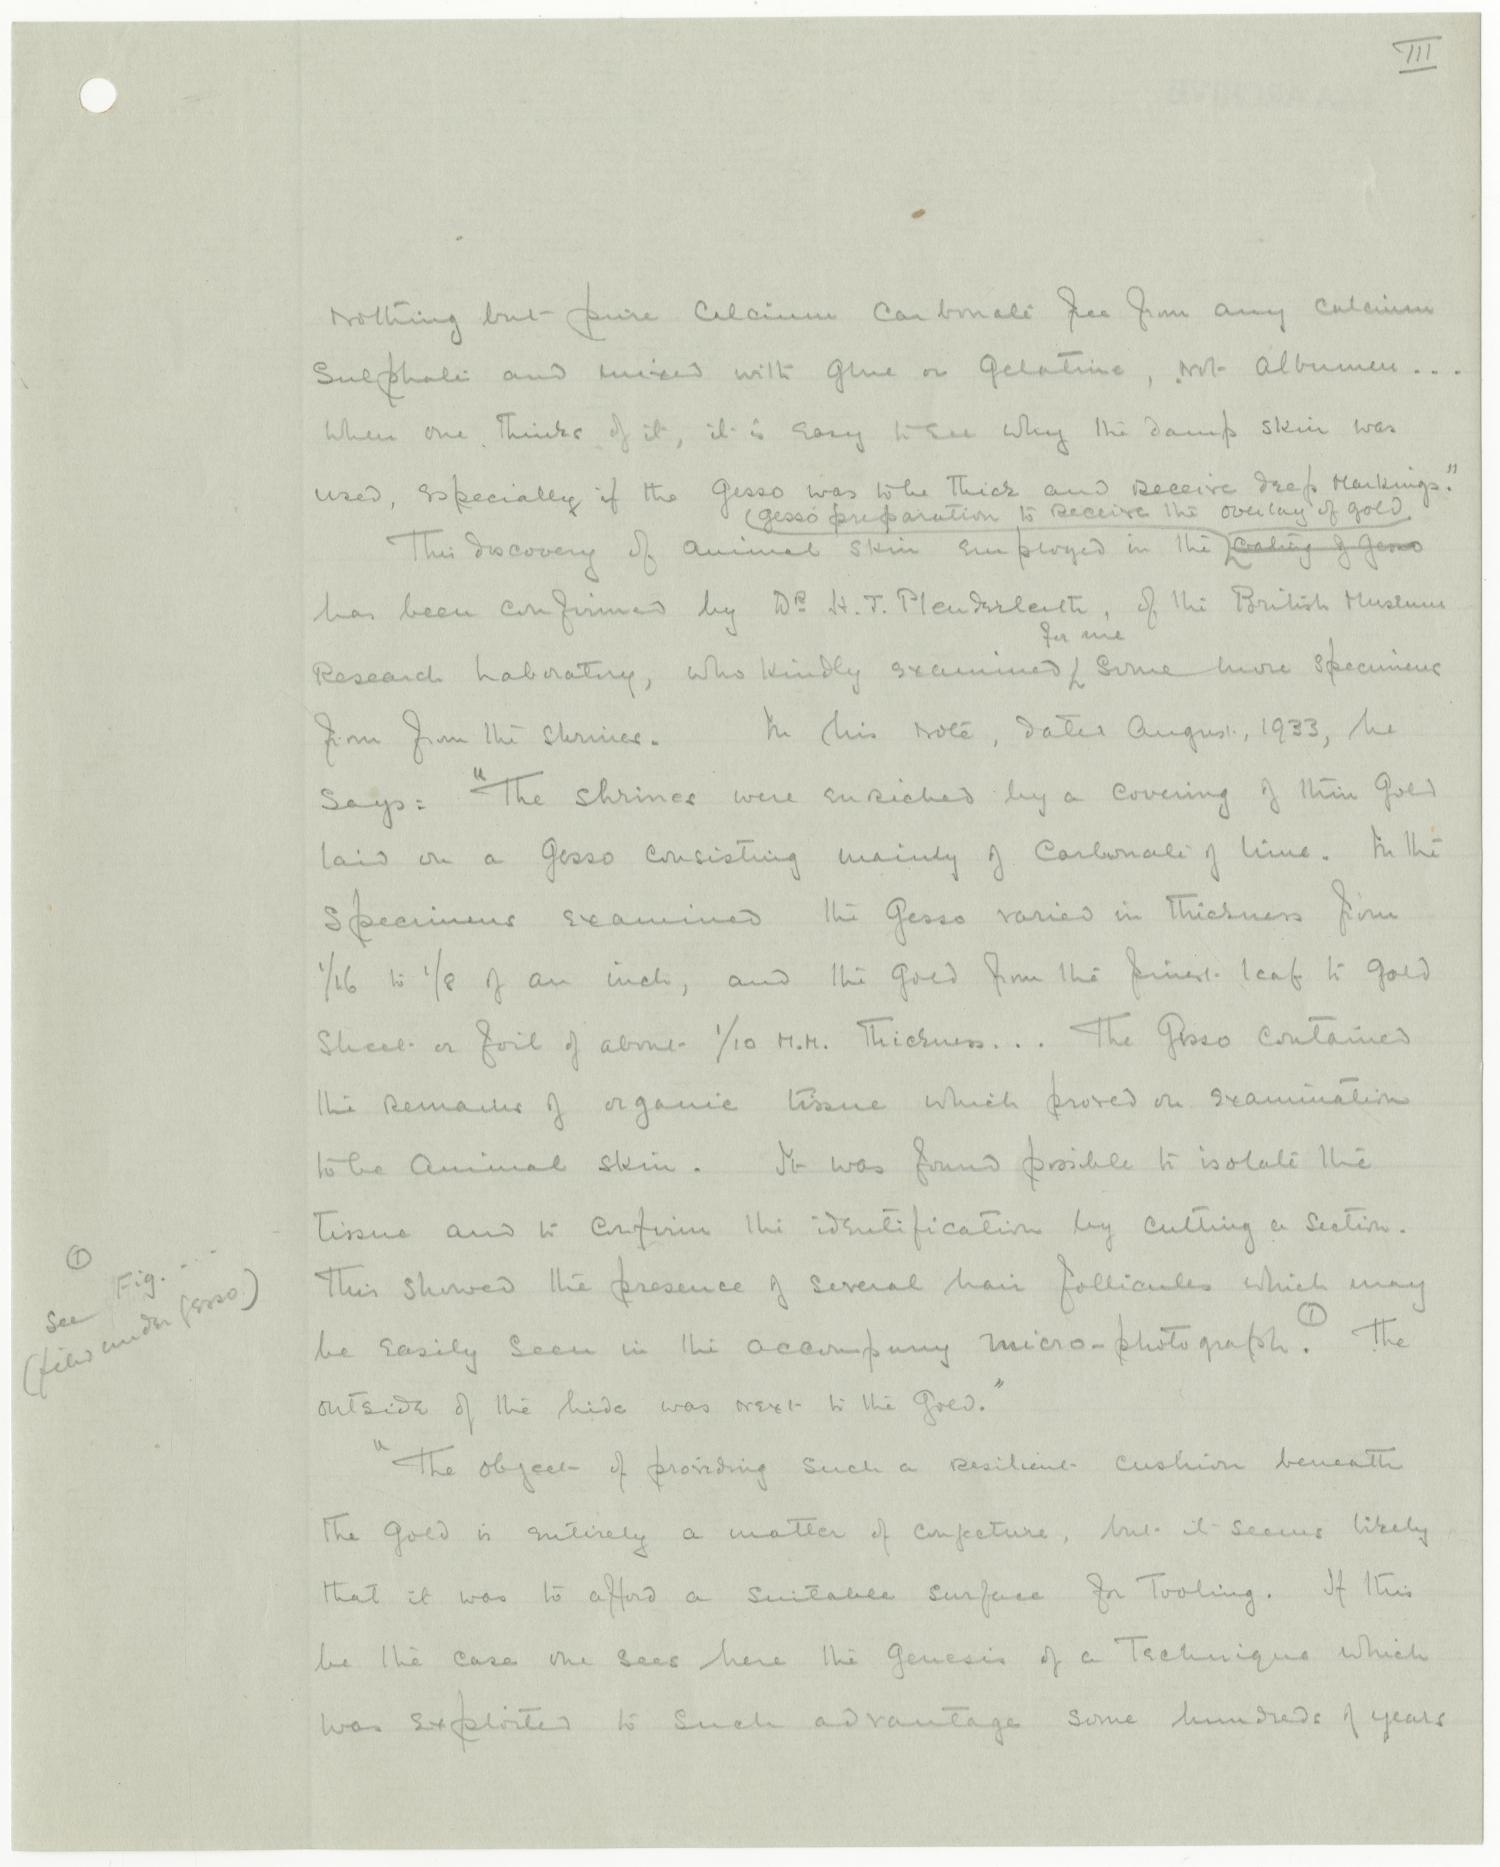 III
Nothing but pure Calcium Carbonate free from any Calcium
Sulphate and mixed with glue or Gelatine, not Albumen...
When one thinks of it, it is easy to see why the damp skin was
used, especially if the Gesso was to be thick and receive deep markings."
gesso preparation to receive the overlay of gold
This discovery of animal skin employed in the coating of Gesso
has been confirmed by Dr H. J. Plenderleith, of the British Museum
for me
Research Laboratory, who kindly examined some more specimens
from from the shrines. In his note, dated August, 1933, he
says: "The shrines were enriched by a covering of thin gold
laid on a Gesso consisting mainly of Carbonate of lime. In the
specimens examined the Gesso varied in thickness from
1/16 to 1/8 of an inch, and the gold from the finest leaf to gold
sheet or foil of about 1/10 M.M. thickness... The Gesso contained
the remains of organic tissue which proved on examination
to be animal skin. It was found possible to isolate the
tissue and to confirm the identification by cutting a section.
This showed the presence of several hair follicules which may
be easily seen in the accompany micro-photograph.① The
outside of the hide was next to the gold."
① See Fig. ...
(filed under Gesso)
"The object of providing such a resilient cushion beneath
the gold is entirely a matter of conjecture, but it seems likely
that it was to afford a suitable surface for tooling. If this
be the case one sees here the genesis of a technique which
was exploited to such advantage some hundreds of years